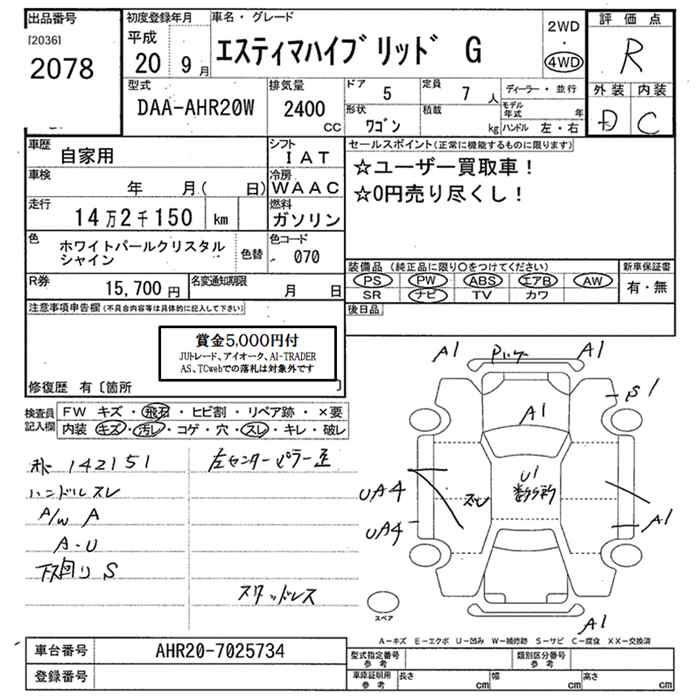 出品番号
[2036]
2078
初度登録年月
平成
20 9月
車名・グレード
エスティマハイブリッド G
2WD
・
4WD
評価点
R
外装 内装
D C
型式
DAA-AHR20W
排気量
2400
CC
ドア
5
定員
7人
ディーラー・並行
形状
ワゴン
積載
kg
モデル年式 年
ハンドル 左・右
車歴
自家用
シフト
IAT
車検
年 月( 日)
冷房
WAAC
走行
14万2千150 km
燃料
ガソリン
色
ホワイトパールクリスタル
シャイン
色替
色コード
070
R券
15,700円
名変通知期限
月 日
セールスポイント(正常に機能するものに限ります)
☆ユーザー買取車!
☆0円売り尽くし!
装備品 (純正品に限り○をつけてください)
PS PW ABS エアB AW
SR ナビ TV カワ
新車保証書
有・無
後日品
注意事項申告欄(不具合内容等は具体的に記入して下さい)
賞金5,000円付
JUトレード、アイオーク、AI-TRADER
AS、TCwebでの落札は対象外です
修復歴 有〔箇所 〕
検査員
記入欄
FW キズ・飛石・ヒビ割・リペア跡・×要
内装 キズ・汚レ・コゲ・穴・スレ・キレ・破レ
142151
左センターピラー
ハンドルスレ
A/W A
A-U
下回りS
スタッドレス
A1
A1
S1
A1
U1
UA4
UA4
A1
A1
スペア
A-キズ E-エクボ U-凹み W-補修跡 S-サビ C-腐食 XX-交換済
車台番号
AHR20-7025734
登録番号
型式指定番号
参考
類別区分番号
参考
車庫証明用
参考
長さ cm
幅 cm
高さ cm